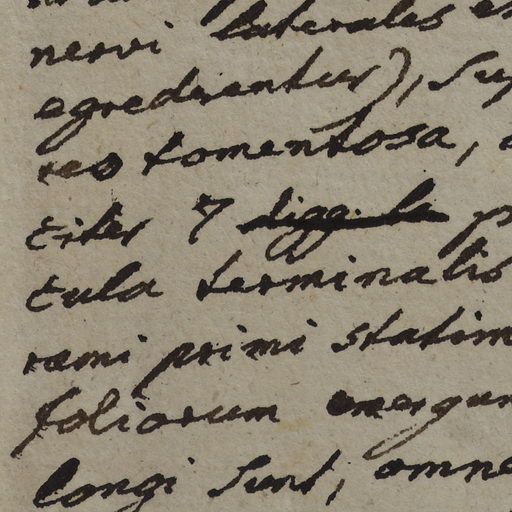 nervi laterales
egrediantur), Su
reo tomentosa,
titer 7
tula terminalis
rami primi statim
foliorum emergun
longi sunt, omne